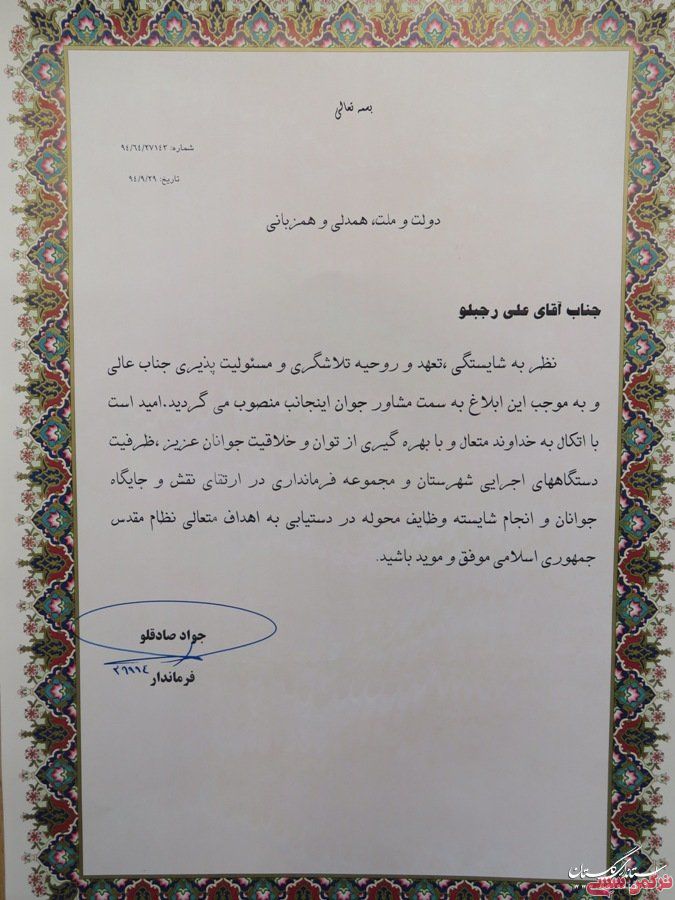 بسمه تعالی
شماره: ۹۴/۶۴/۲۷۱۴۲
تاریخ: ۹۴/۹/۲۹
دولت و ملت، همدلی و همزبانی
جناب آقای علی رجبلو
نظر به شایستگی ،تعهد و روحیه تلاشگری و مسئولیت پذیری جناب عالی
و به موجب این ابلاغ به سمت مشاور جوان اینجانب منصوب می گردید.امید است
با اتکال به خداوند متعال و با بهره گیری از توان و خلاقیت جوانان عزیز ،ظرفیت
دستگاههای اجرایی شهرستان و مجموعه فرمانداری در ارتقای نقش و جایگاه
جوانان و انجام شایسته وظایف محوله در دستیابی به اهداف متعالی نظام مقدس
جمهوری اسلامی موفق و موید باشید.
جواد صادقلو
فرماندار
۲۶۹۱۴